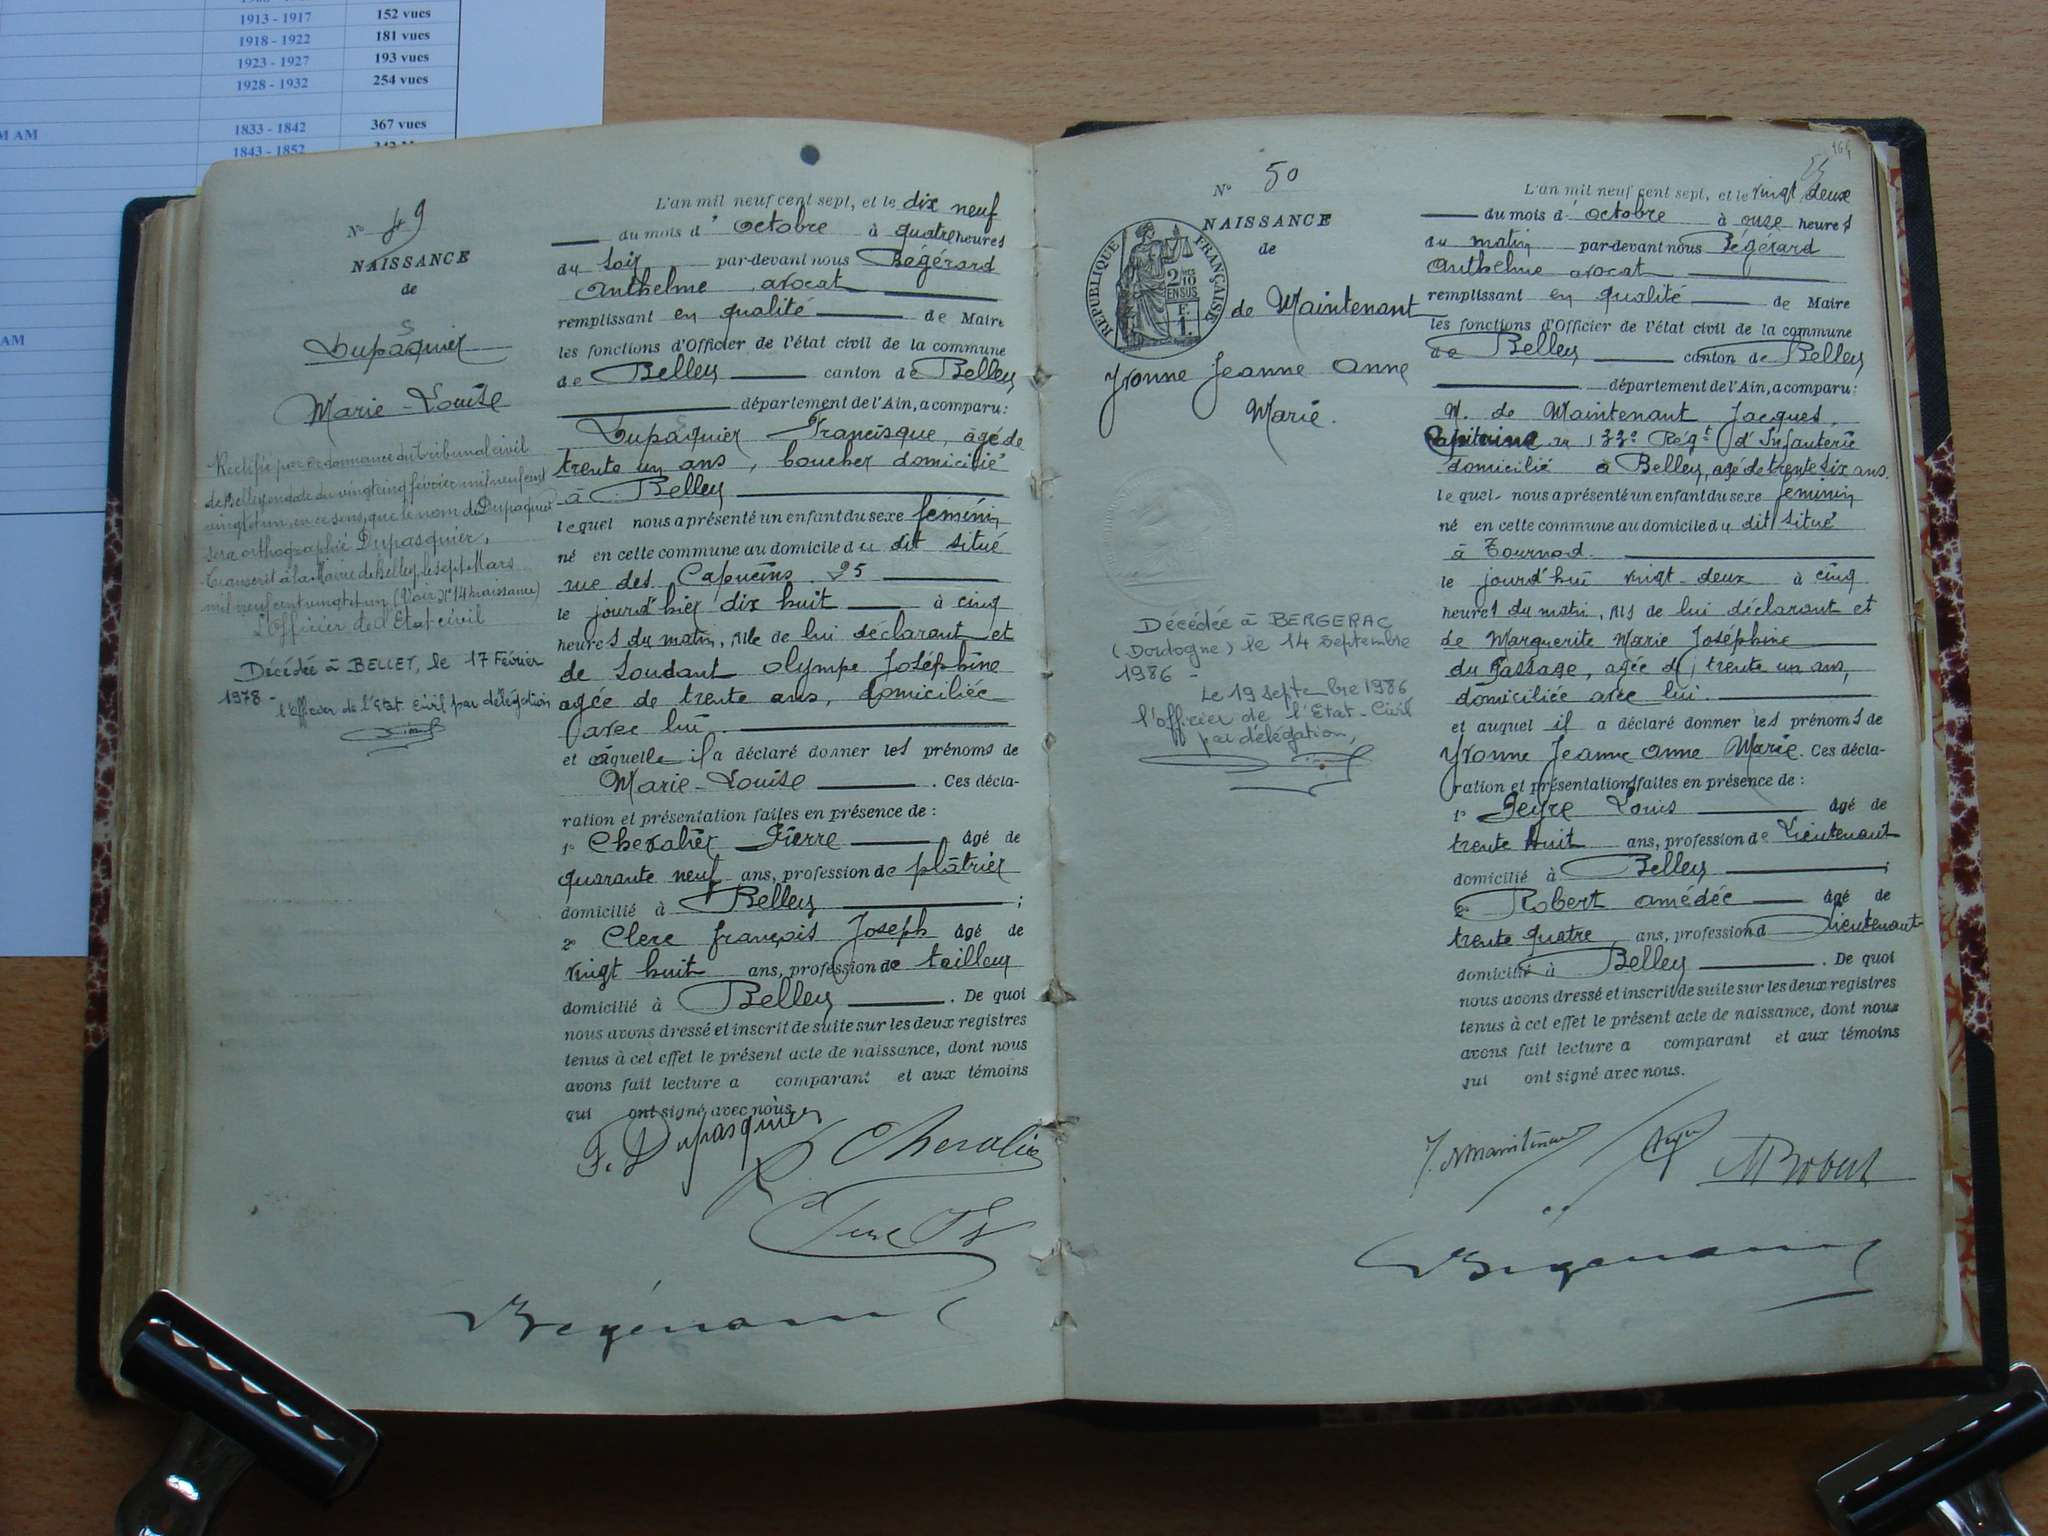 1913 - 1917 152 vues
1918 - 1922 181 vues
1923 - 1927 193 vues
1928 - 1932 254 vues
M AM 1833 - 1842 367 vues
1843 - 1852
AM
N° 49
NAISSANCE
de
S
Dupaquier
Marie-Louise
Rectifié par ordonnance du Tribunal civil
de Belley en date du vingt cinq février mil neuf cent
vingt et un, en ce sens que le nom de Dupaquier
sera orthographié Dupasquier,
Transcrit à la Mairie de Belley, le sept Mars
mil neuf cent vingt et un (Voir N° 14 naissance)
L'Officier de l'Etat civil
Décédée à BELLEY, le 17 Février
1978 -
l'officier de l'Etat civil par délégation
L'an mil neuf cent sept, et le dix neuf
du mois d'octobre à quatre heures
du soir par-devant nous Bégérard
Anthelme avocat
remplissant en qualité de Maire
les fonctions d'Officier de l'état civil de la commune
de Belley canton de Belley
département de l'Ain, a comparu:
S
Dupaquier Francisque, âgé de
trente un ans, boucher domicilié
à Belley
lequel nous a présenté un enfant du sexe féminin
né en cette commune au domicile du dit situé
rue des Capucins 25
le jourd'hier dix huit à cinq
heures du matin, fille de lui déclarant et
de Soudant Olympe Joséphine
agée de trente ans, domiciliée
avec lui.
et à laquelle il a déclaré donner les prénoms de
Marie-Louise. Ces décla-
ration et présentation faites en présence de:
1° Chevalier Pierre âgé de
quarante neuf ans, profession de plâtrier
domicilié à Belley;
2° Clerc françois Joseph âgé de
vingt huit ans, profession de tailleur
domicilié à Belley. De quoi
nous avons dressé et inscrit de suite sur les deux registres
tenus à cet effet le présent acte de naissance, dont nous
avons fait lecture a comparant et aux témoins
qui ont signé avec nous.
F. Dupasquier
P. Chevalier
Clerc Fs
Bégérard
164
N° 50
NAISSANCE
de
REPUBLIQUE FRANÇAISE
2/10 EN SUS
F.
1.
de Maintenant
Yvonne Jeanne Anne
Marie.
Décédée à BERGERAC
(Dordogne) le 14 septembre
1986 -
Le 19 septembre 1986
l'officier de l'Etat-Civil
par délégation,
L'an mil neuf cent sept, et le vingt deux
du mois d'octobre à onze heures
du matin par-devant nous Bégérard
Anthelme avocat
remplissant en qualité de Maire
les fonctions d'Officier de l'état civil de la commune
de Belley canton de Belley
département de l'Ain, a comparu:
M. de Maintenant Jacques,
Capitaine au 133° Régt d'Infanterie
domicilié à Belley, agé de trente six ans.
lequel nous a présenté un enfant du sexe féminin
né en cette commune au domicile du dit situé
à Tournod.
le jourd'hui vingt-deux à cinq
heures du matin, fils de lui déclarant et
de Marguerite Marie Joséphine
du Passage, agée de trente un ans,
domiciliée avec lui.
et auquel il a déclaré donner les prénoms de
Yvonne Jeanne Anne Marie. Ces décla-
ration et présentation faites en présence de:
1° Peyre Louis âgé de
trente huit ans, profession de Lieutenant
domicilié à Belley;
2° Robert Amédée âgé de
trente quatre ans, profession d Lieutenant
domicilié à Belley. De quoi
nous avons dressé et inscrit de suite sur les deux registres
tenus à cet effet le présent acte de naissance, dont nous
avons fait lecture a comparant et aux témoins
qui ont signé avec nous.
J. Maintenant
Peyre
Robert
Bégérard